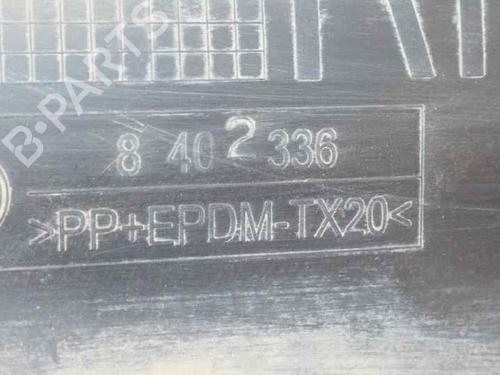 B-PARTS
8 402 336
>PP+EPDM-TX20<